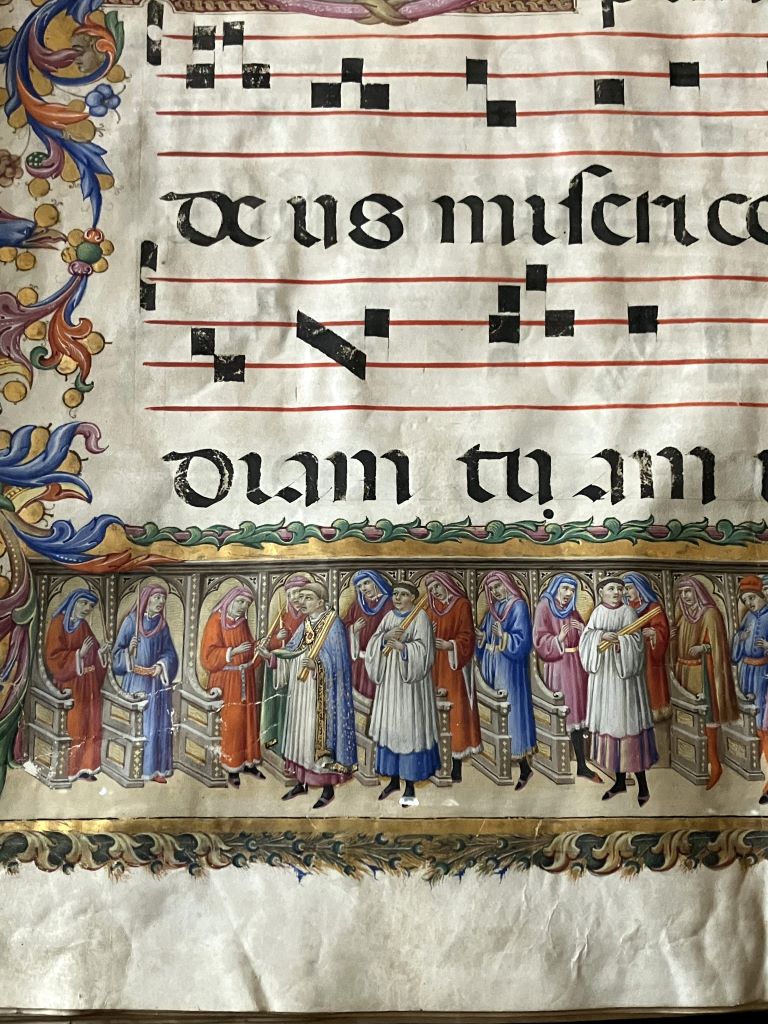 deus miserico
diam tuam